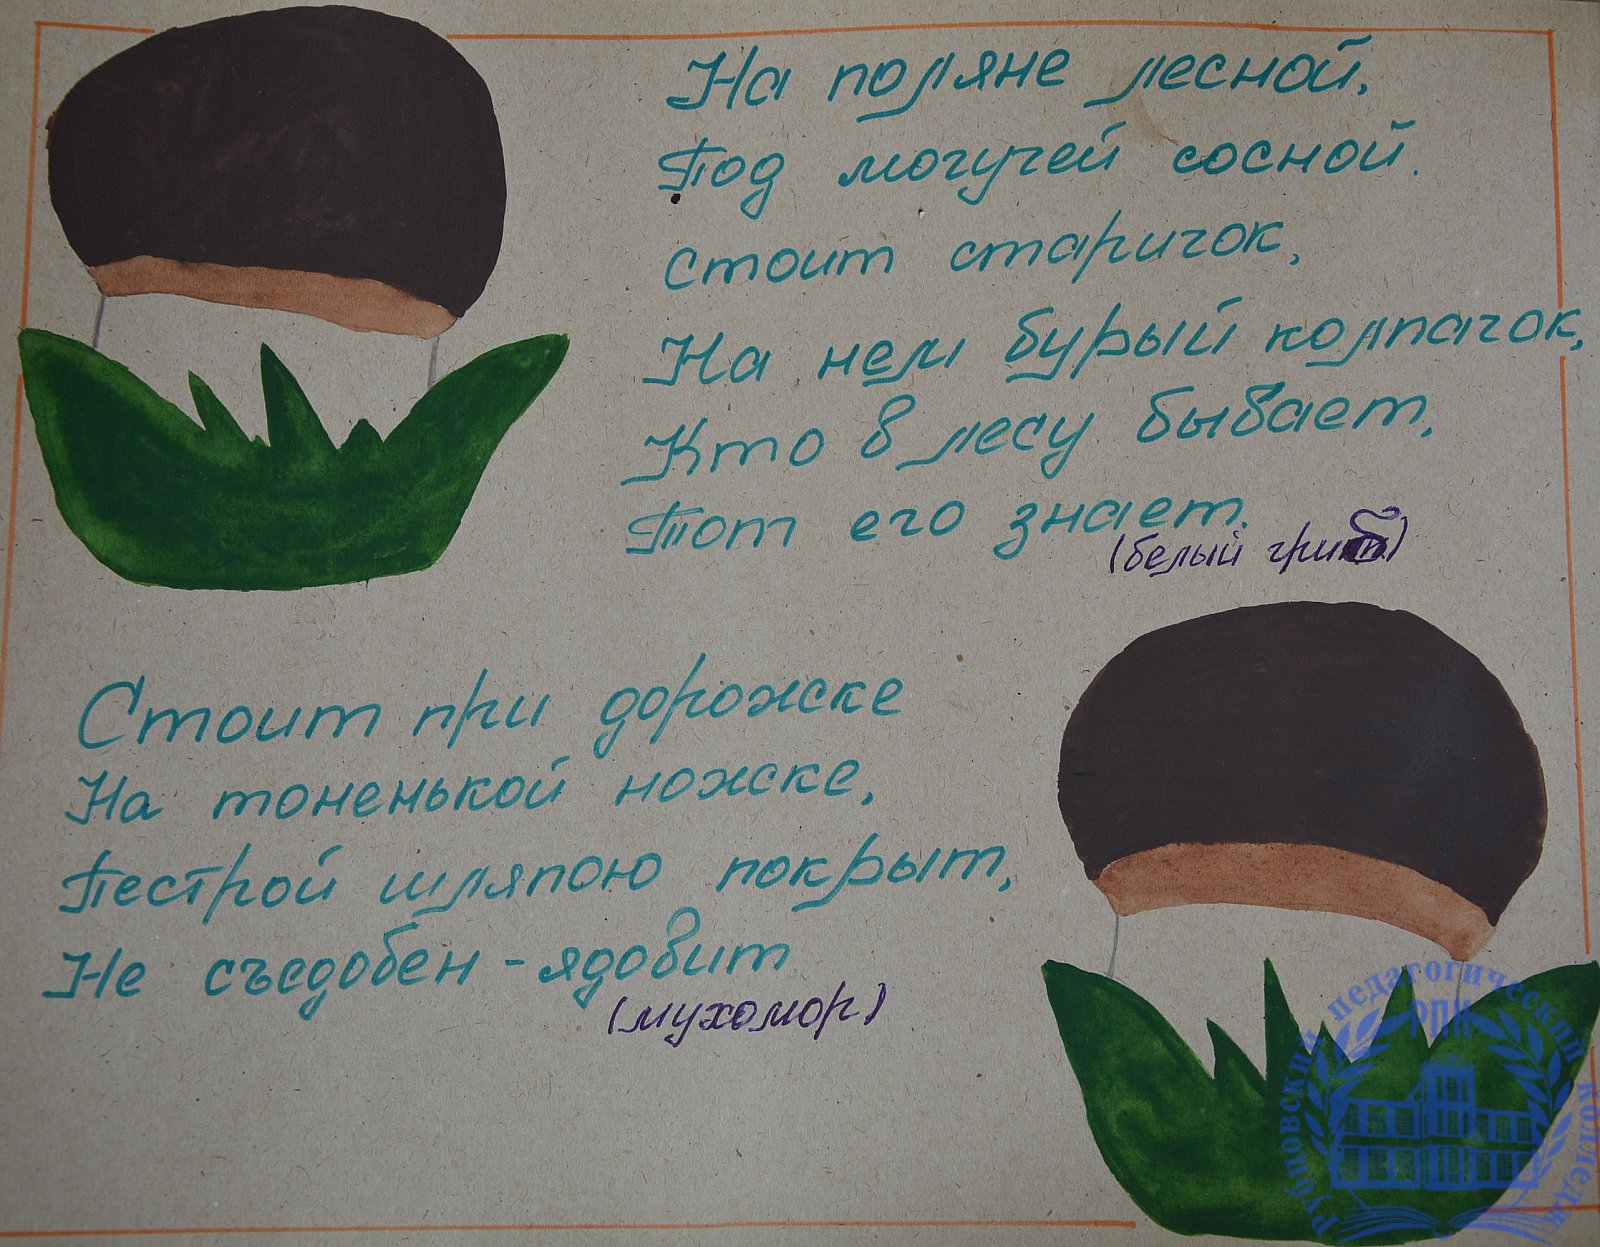 На поляне лесной,
Под могучей сосной.
Стоит старичок,
На нем бурый колпачок,
Кто в лесу бывает,
Тот его знает.
(белый гриб)
Стоит при дорожке
На тоненькой ножке,
Пестрой шляпою покрыт,
Не съедобен - ядовит
(мухомор)
Рубцовский педагогический колледж
РПК